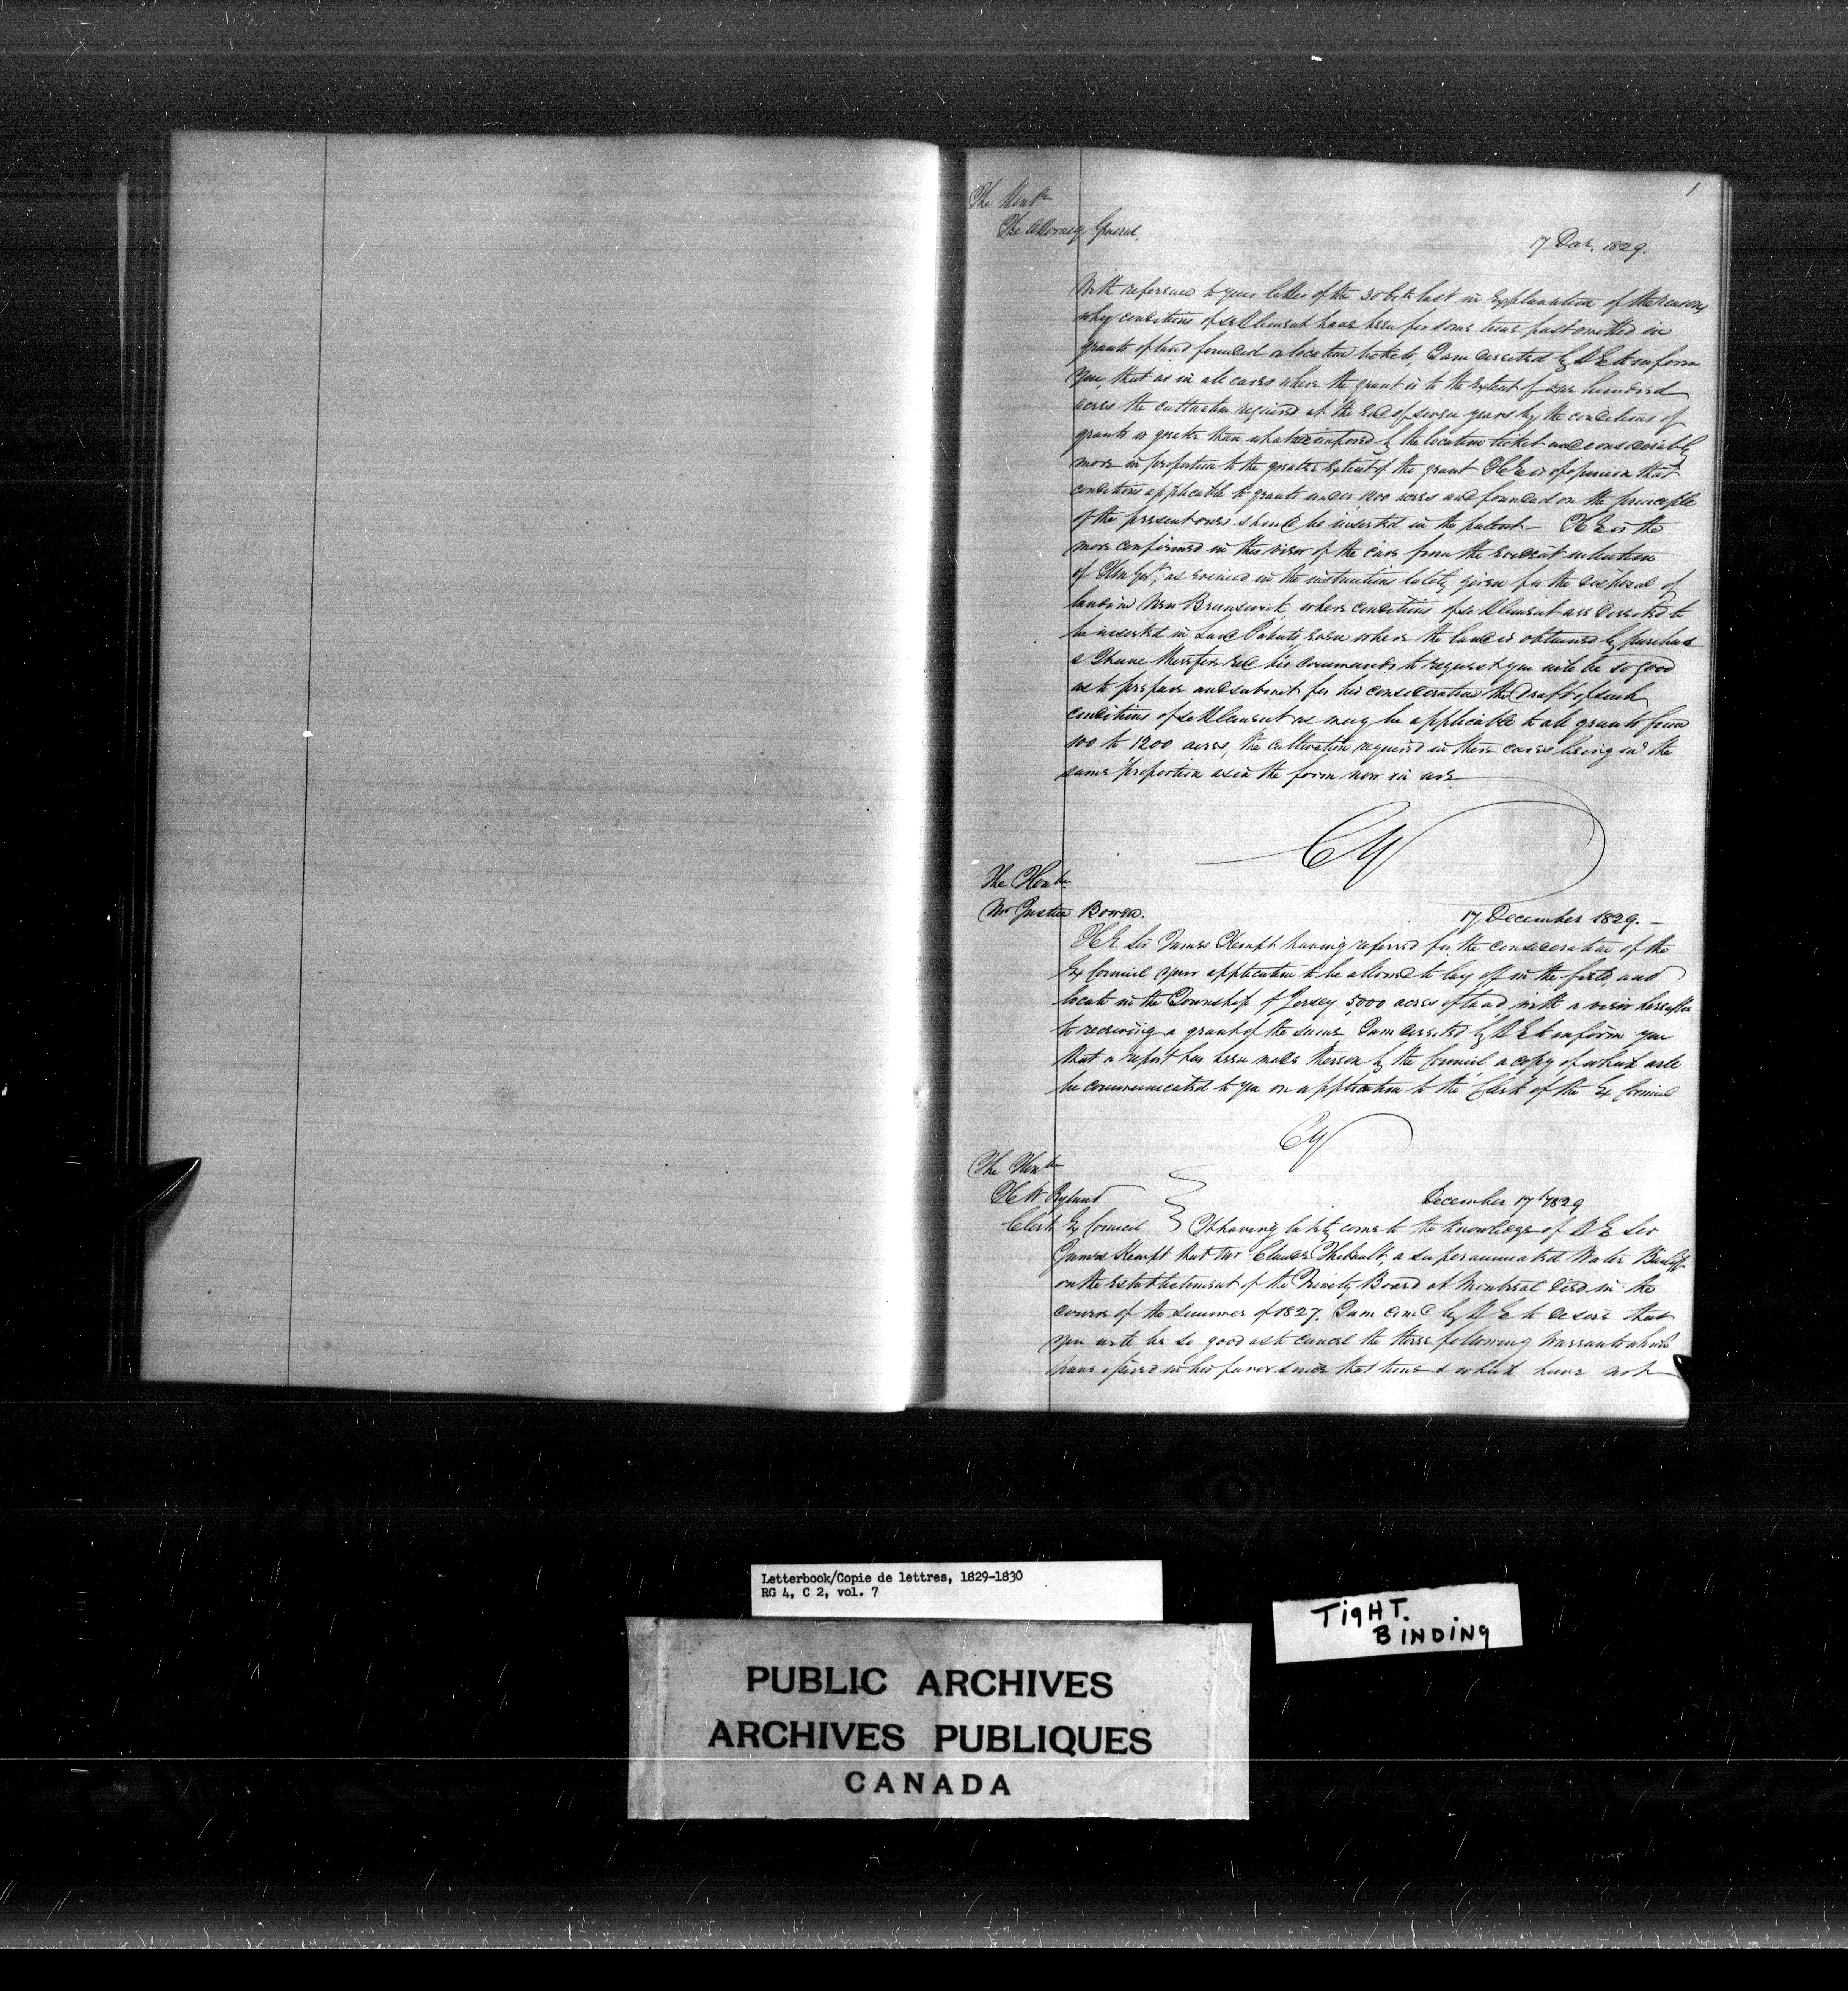 1
The Honble
The Attorney General,
17 Decr. 1829.
With reference to your letter of the 30 Octr last in explanation of the reasons
why conditions of settlement have been for some time past omitted in
grants of land founded on location tickets, I am directed by H E to inform
you, that as in all cases where the grant is to the extent of one hundred
acres the cultivation required at the end of seven years by the conditions of
grants is greater than what is imposed by the location ticket and considerably
more in proportion to the greater extent of the grant H E is of opinion that
conditions applicable to grants under 1200 acres and founded on the principle
of the present ones should be inserted in the patent – H E is the
more confirmed in this view of the case from the evident intention
of H M Govt, as evinced in the instructions lately given for the disposal of
land in New Brunswick, where conditions of settlement are directed to
be inserted in Land Patents even where the land is obtained by purchase
& I have therefore recd his commands to request you will be so good
as to prepare and submit for his consideration the draft of such
conditions of settlement as may be applicable to all grants from
100 to 1200 acres, the cultivation required in these cases being in the
same proportion as in the form now in use
CY
The Honble
Mr Justice Bowen.
17 December 1829. –
H.E. Sir James Kempt having referred for the consideration of the
Ex Council your application to be allowed to lay off in the field, and
locate in the Township of Jersey 5000 acres of land, with a view hereafter
to receiving a grant of the same I am directed by H E to inform you
that a report has been made thereon by the Council a copy of which will
be communicated to you on application to the Clerk of the Ex Council
CY
The Honble
H W Ryland
Clerk Ex Council
December 17th 1829
It having lately come to the knowledge of H E Sir
James Kempt that Mr Claude Thibault, a superannuated Water Bailiff
on the establishment of the Trinity Board at Montreal died in the
course of the summer of 1827. I am comd by H E to desire that
you will be so good as to cancel the three following Warrants which
have issued in his favor since that time & which have not
Letterbook/Copie de lettres, 1829-1830
RG 4, C 2, vol. 7
TIGHT.
BINDING
PUBLIC ARCHIVES
ARCHIVES PUBLIQUES
CANADA